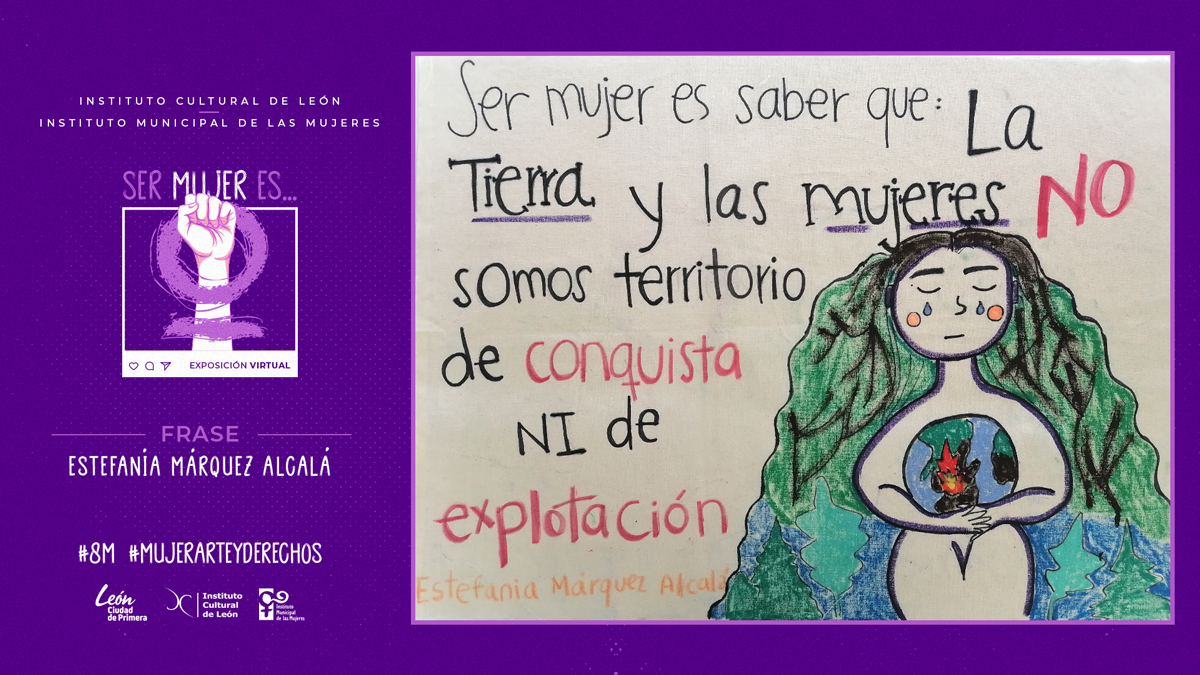 INSTITUTO CULTURAL DE LEÓN
INSTITUTO MUNICIPAL DE LAS MUJERES
SER MUJER ES...
EXPOSICIÓN VIRTUAL
FRASE
ESTEFANÍA MÁRQUEZ ALCALÁ
#8M #MUJERARTEYDERECHOS
León
Ciudad
de Primera
Instituto
Cultural
de León
Instituto
Municipal
de las Mujeres
Ser mujer es saber que: La
Tierra y las mujeres NO
somos territorio
de conquista
NI de
explotación
Estefania Márquez Alcalá